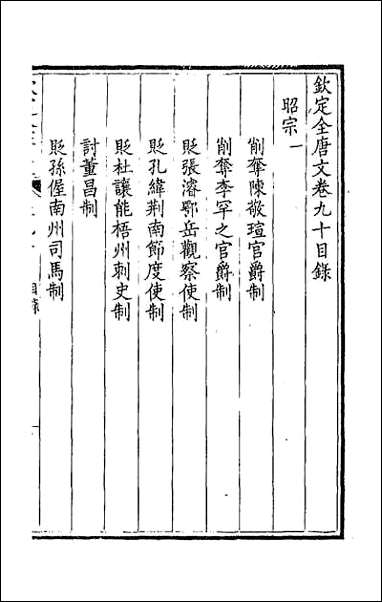 欽定全唐文卷九十目錄
昭宗一
削奪陳敬瑄官爵制
削奪李罕之官爵制
貶張濬鄂岳觀察使制
貶孔緯荆南節度使制
貶杜讓能梧州刺史制
討董昌制
貶孫偓南州司馬制